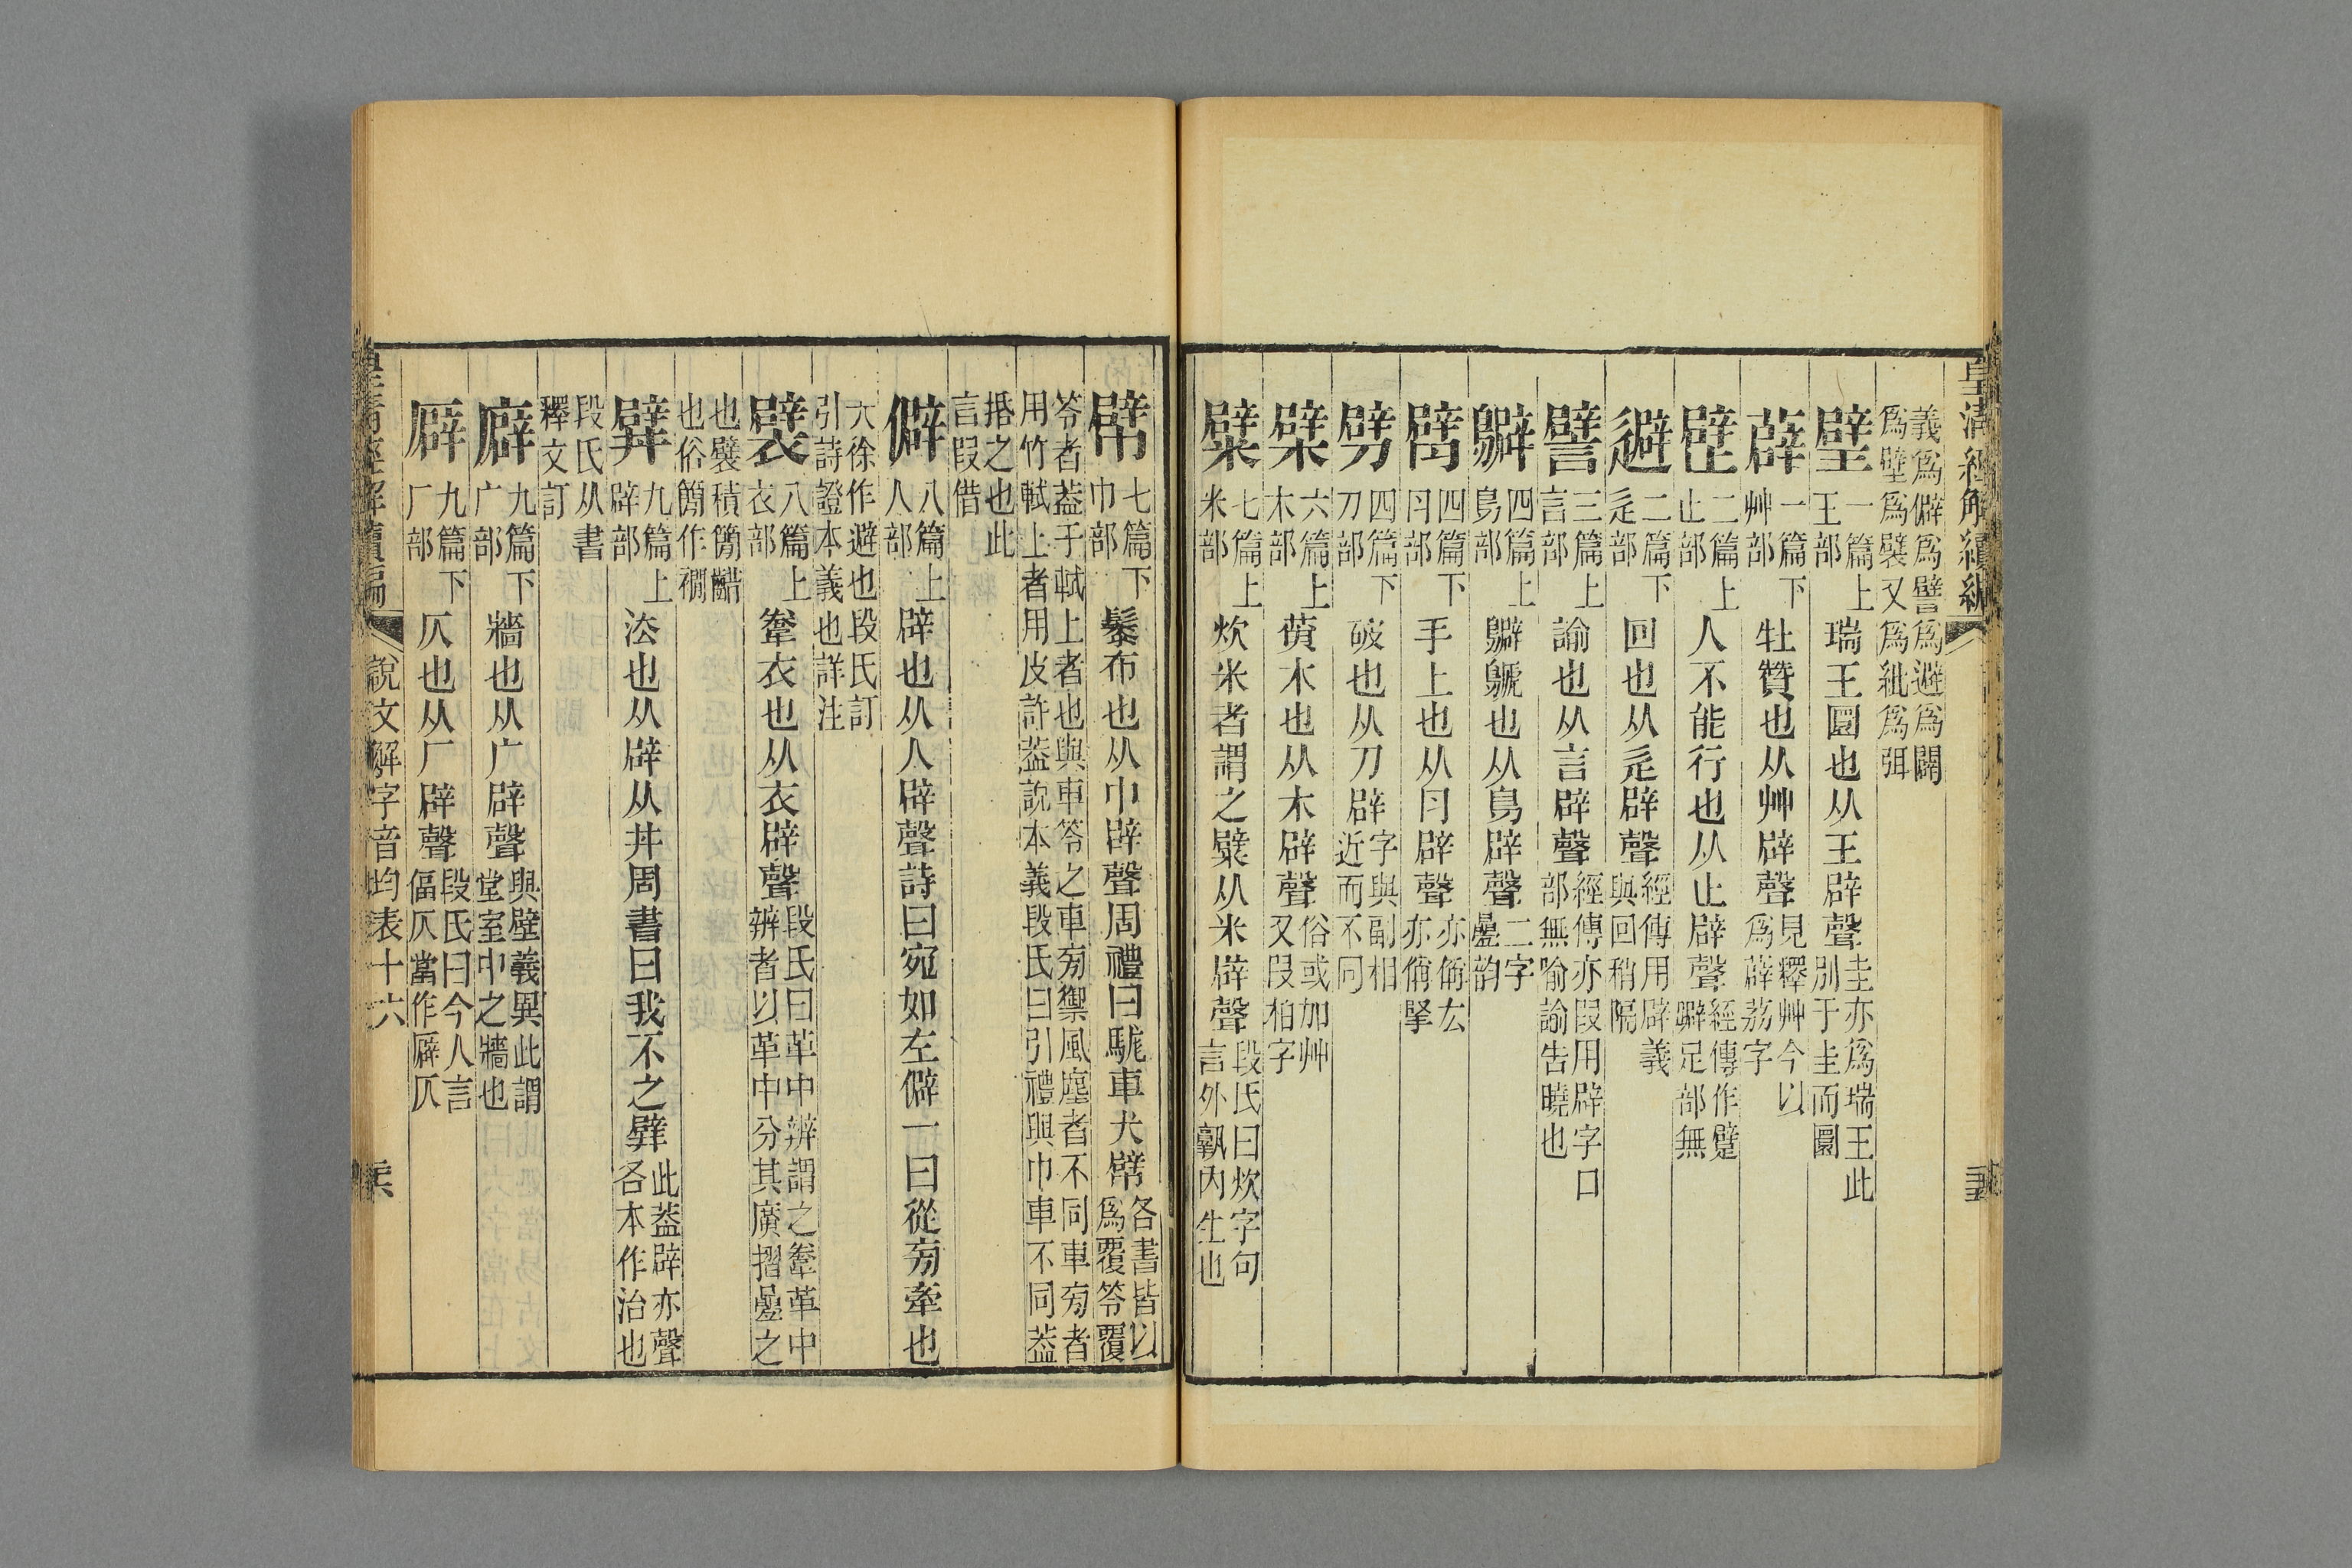 皇清經解續編
義爲僻爲譬爲避爲闢
爲壁爲襞又爲紕爲弭
璧 一篇上 王部 瑞王圜也从王辟聲 圭亦爲瑞王此 別于圭而圜
薜 一篇下 艸部 牡贊也从艸辟聲 見釋艸今以 爲薜荔字
壁 二篇上 止部 人不能行也从止辟聲 經傳作躄 躃足部無
避 二篇下 辵部 回也从辵辟聲 經傳用辟義 與回稍隔
譬 三篇上 言部 諭也从言辟聲 經傳亦叚用辟字口 部無喻諭告曉也
鷿 四篇上 鳥部 鷿鷈也从鳥辟聲 二字 疊韵
臂 四篇下 ⺼部 手上也从⺼辟聲 亦偁厷 亦偁掔
劈 四篇下 刀部 破也从刀辟 字與副相 近而不同
檗 六篇上 木部 黃木也从木辟聲 俗或加艸 又叚柏字
糪 七篇上 米部 炊米者謂之糪从米辟聲 段氏曰炊字句 言外孰內生也
幦 七篇下 巾部 鬃布也从巾辟聲周禮曰駹車犬幦 各書皆以 爲覆笭覆
笭者葢于軾上者也與車笭之車㫄禦風塵者不同車㫄者
用竹軾上者用皮許葢說本義段氏曰引禮與巾車不同葢
捪之也此
言叚借
僻 八篇上 人部 辟也从人辟聲詩曰宛如左僻一曰從㫄牽也
大徐作避也段氏訂
引詩證本義也詳注
襞 八篇上 衣部 韏衣也从衣辟聲 段氏曰革中辨謂之韏革中 辨者以革中分其廣摺疊之
也襞積簡齰
也俗簡作襉
擘 九篇上 辟部 法也从辟从井周書曰我不之擘 此葢辟亦聲 各本作治也
段氏从書
釋文訂
廦 九篇下 广部 牆也从广辟聲 與壁義異此謂 堂室中之牆也
厞 九篇下 厂部 仄也从厂辟聲 段氏曰今人言 偪仄當作厞仄
皇清經解續編 說文解字音均表十六